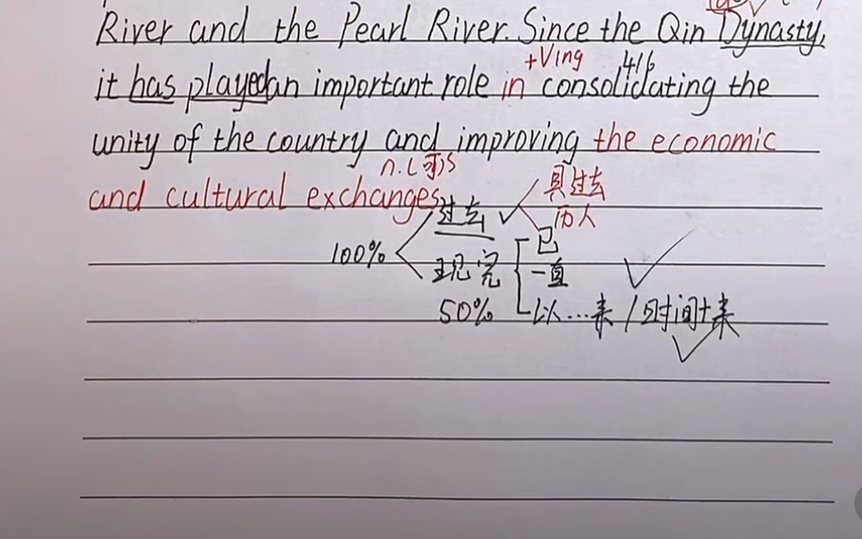 River and the Pearl River. Since the Qin Dynasty,
+Ving 4/6
it has played an important role in consolidating the
unity of the country and improving the economic
n.(可)s
and cultural exchanges.
过去 具过去
历人
100%
现完 已
一直
50% 以...来/时间+来